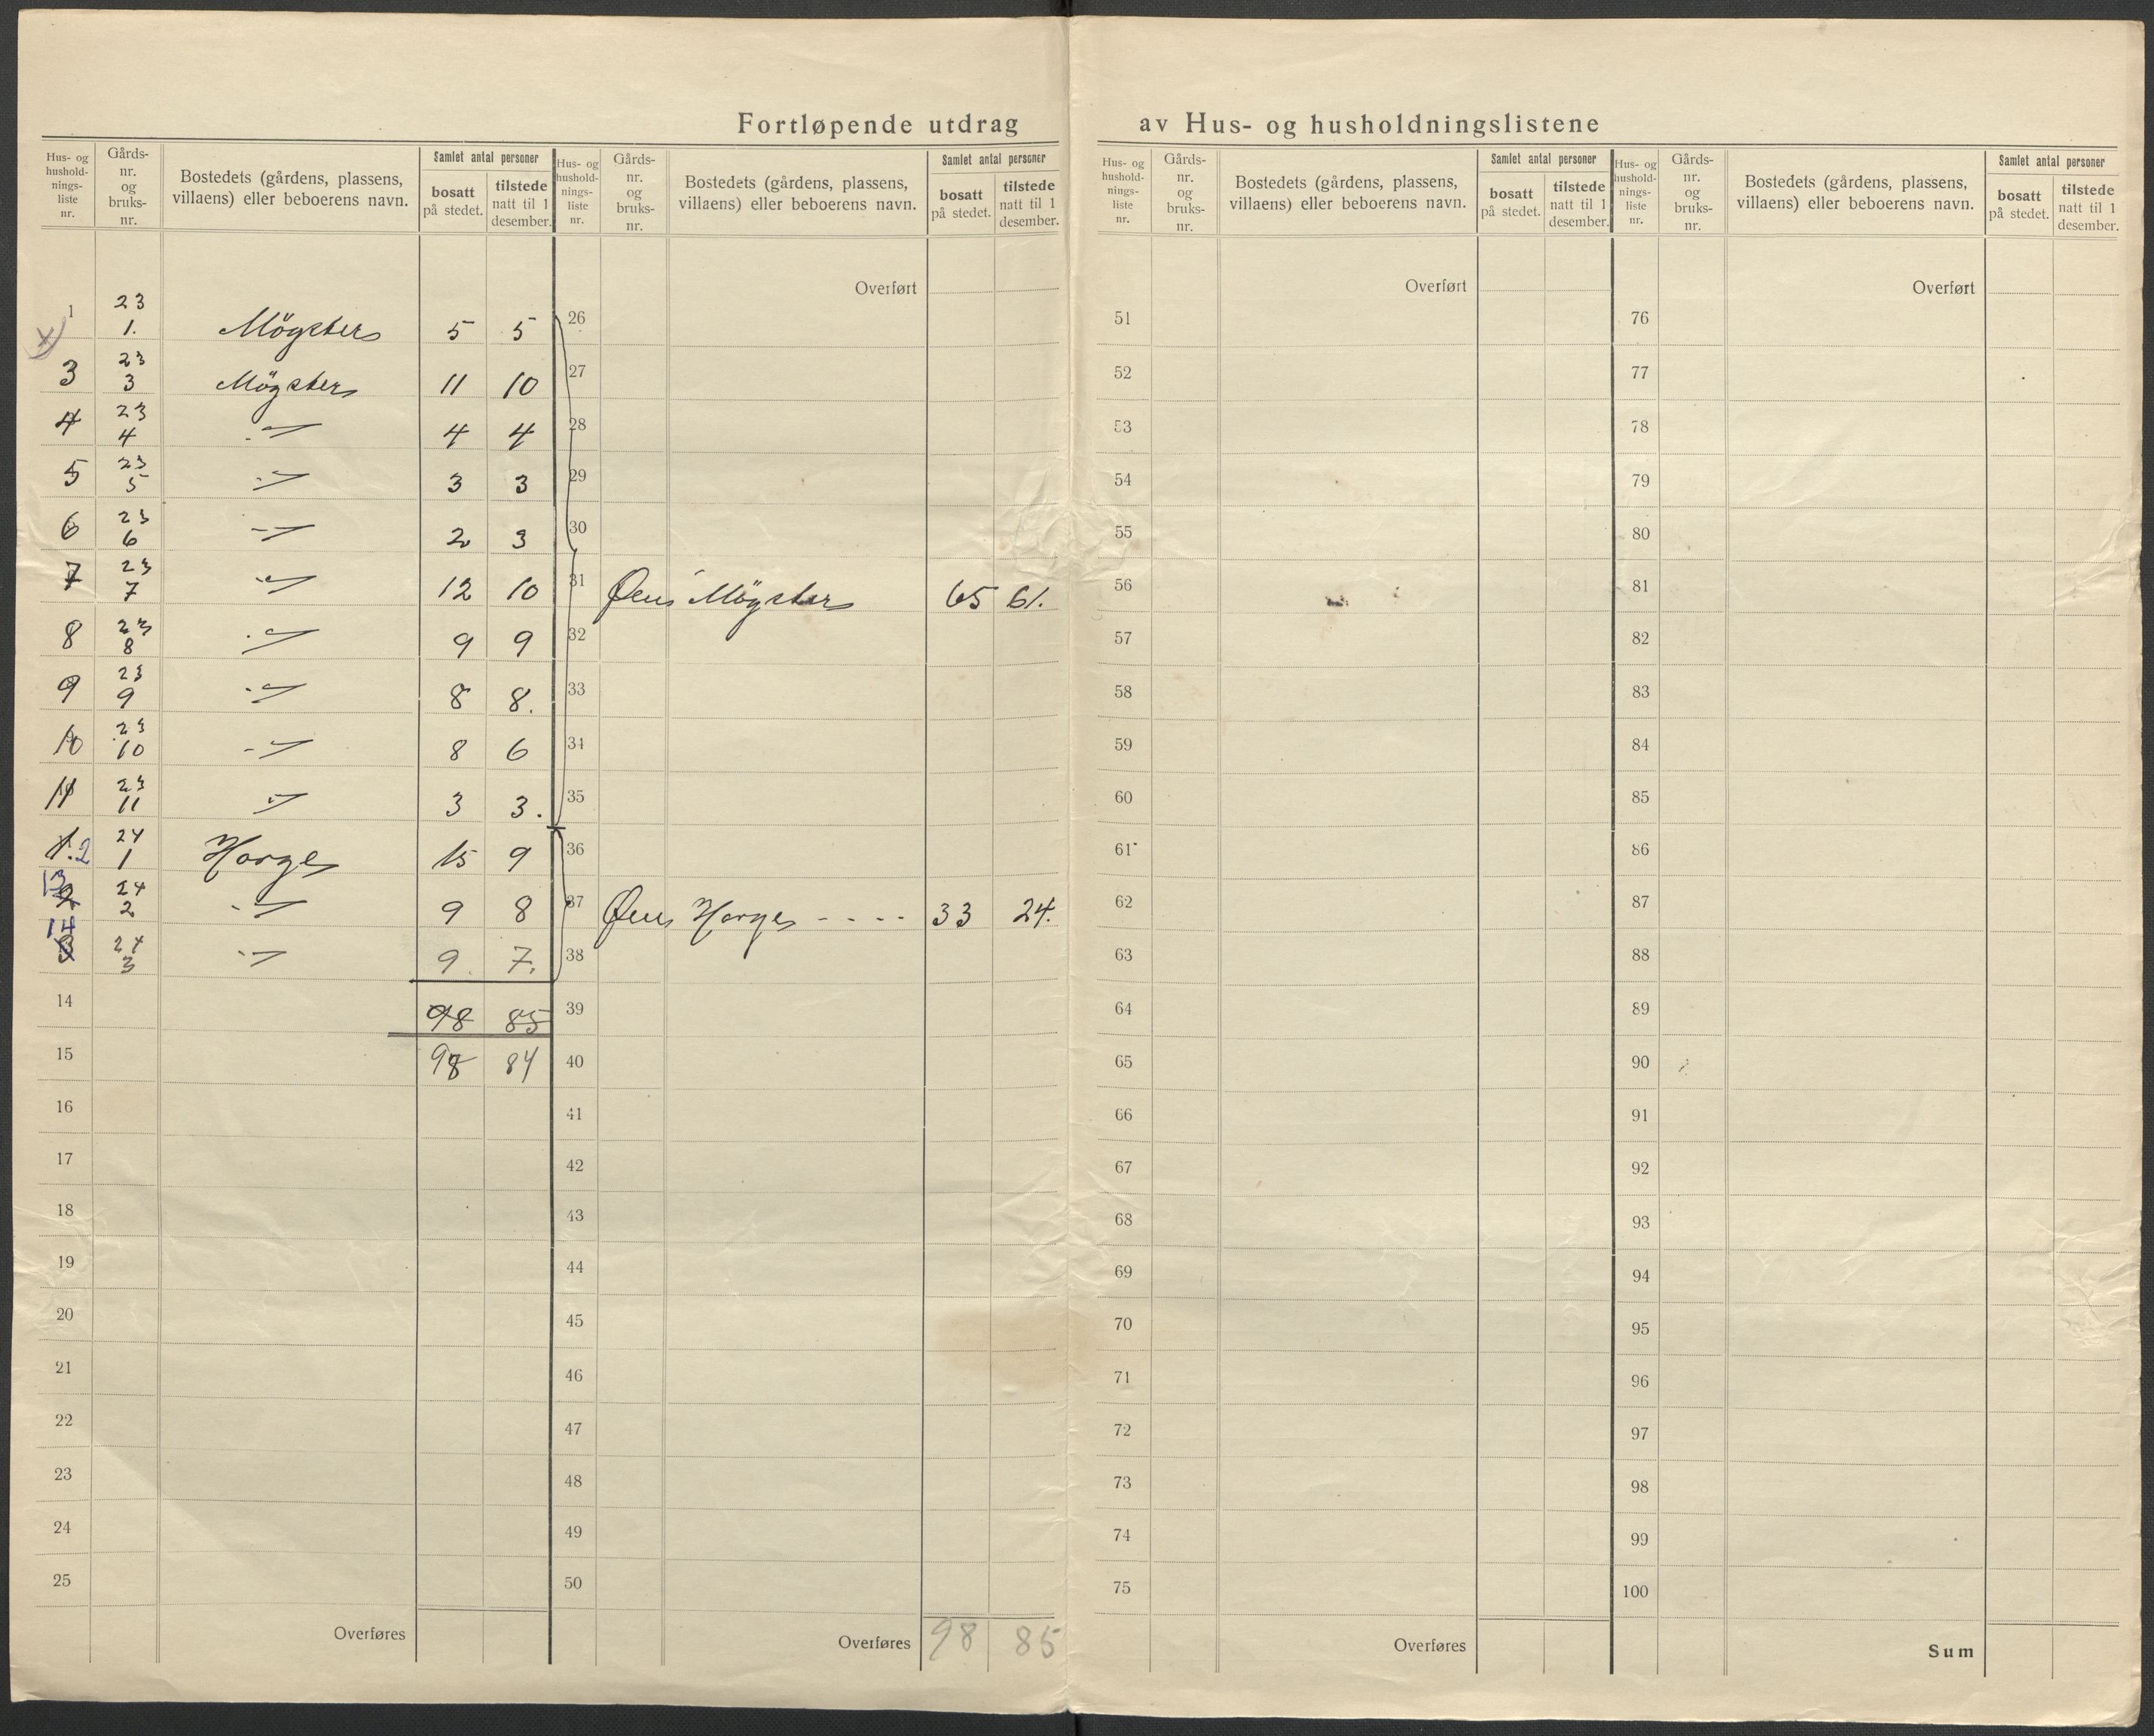 Fortløpende utdrag av Hus- og husholdningslistene
Hus- og hushold-nings-liste nr. Gårds-nr. og bruks-nr. Bostedets (gårdens, plassens, villaens) eller beboerens navn. Samlet antal personer bosatt på stedet. tilstede natt til 1 desember.
1 23 1. Mögster 5 5
3 23 3 Mögster 11 10
4 23 4 -"- 4 4
5 23 5 -"- 3 3
6 23 6 -"- 2 3
7 23 7 -"- 12 10
8 23 8 -"- 9 9
9 23 9 -"- 8 8.
10 23 10 -"- 8 6
11 23 11 -"- 3 3.
1.2 24 1 Horge 15 9
13 24 2 -"- 9 8
14 24 3 -"- 9. 7.
14 98 85
15 98 84
16
17
18
19
20
21
22
23
24
25
Overføres
Hus- og hushold-nings-liste nr. Gårds-nr. og bruks-nr. Bostedets (gårdens, plassens, villaens) eller beboerens navn. Samlet antal personer bosatt på stedet. tilstede natt til 1 desember.
Overført
26
27
28
29
30
31 Øen Mögster 65 61.
32
33
34
35
36
37 Øen Horge - - - - 33 24.
38
39
40
41
42
43
44
45
46
47
48
49
50
Overføres 98 85
Hus- og hushold-nings-liste nr. Gårds-nr. og bruks-nr. Bostedets (gårdens, plassens, villaens) eller beboerens navn. Samlet antal personer bosatt på stedet. tilstede natt til 1 desember.
Overført
51
52
53
54
55
56
57
58
59
60
61
62
63
64
65
66
67
68
69
70
71
72
73
74
75
Overføres
Hus- og hushold-nings-liste nr. Gårds-nr. og bruks-nr. Bostedets (gårdens, plassens, villaens) eller beboerens navn. Samlet antal personer bosatt på stedet. tilstede natt til 1 desember.
Overført
76
77
78
79
80
81
82
83
84
85
86
87
88
89
90
91
92
93
94
95
96
97
98
99
100
Sum